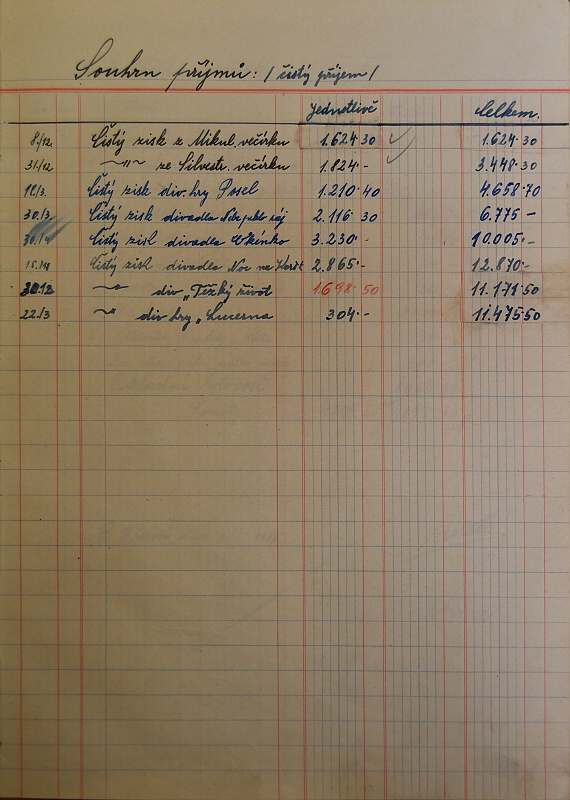 Souhrn příjmů: / čistý příjem /
Jednotlivě Celkem.
8./12. Čistý zisk z Mikul. večírku 1.624·30 1.624·30
31./12 —"— ze Silvestr. večírku 1.824·- 3.448·30
18/3. Čistý zisk div. hry Posel 1.210·40 4.658·70
30./3. Čistý zisk divadla ráj 2.116·30 6.775 -
Čistý zisk divadla Okénko 3.230·- 10.005·-
Čistý zisk divadla Noc na Karlšt 2.865·- 12.870·-
30.12 —"— div „Těžký život 1.698·50 11.171·50
22./3 —"— div hry „Lucerna 304·- 11.475·50